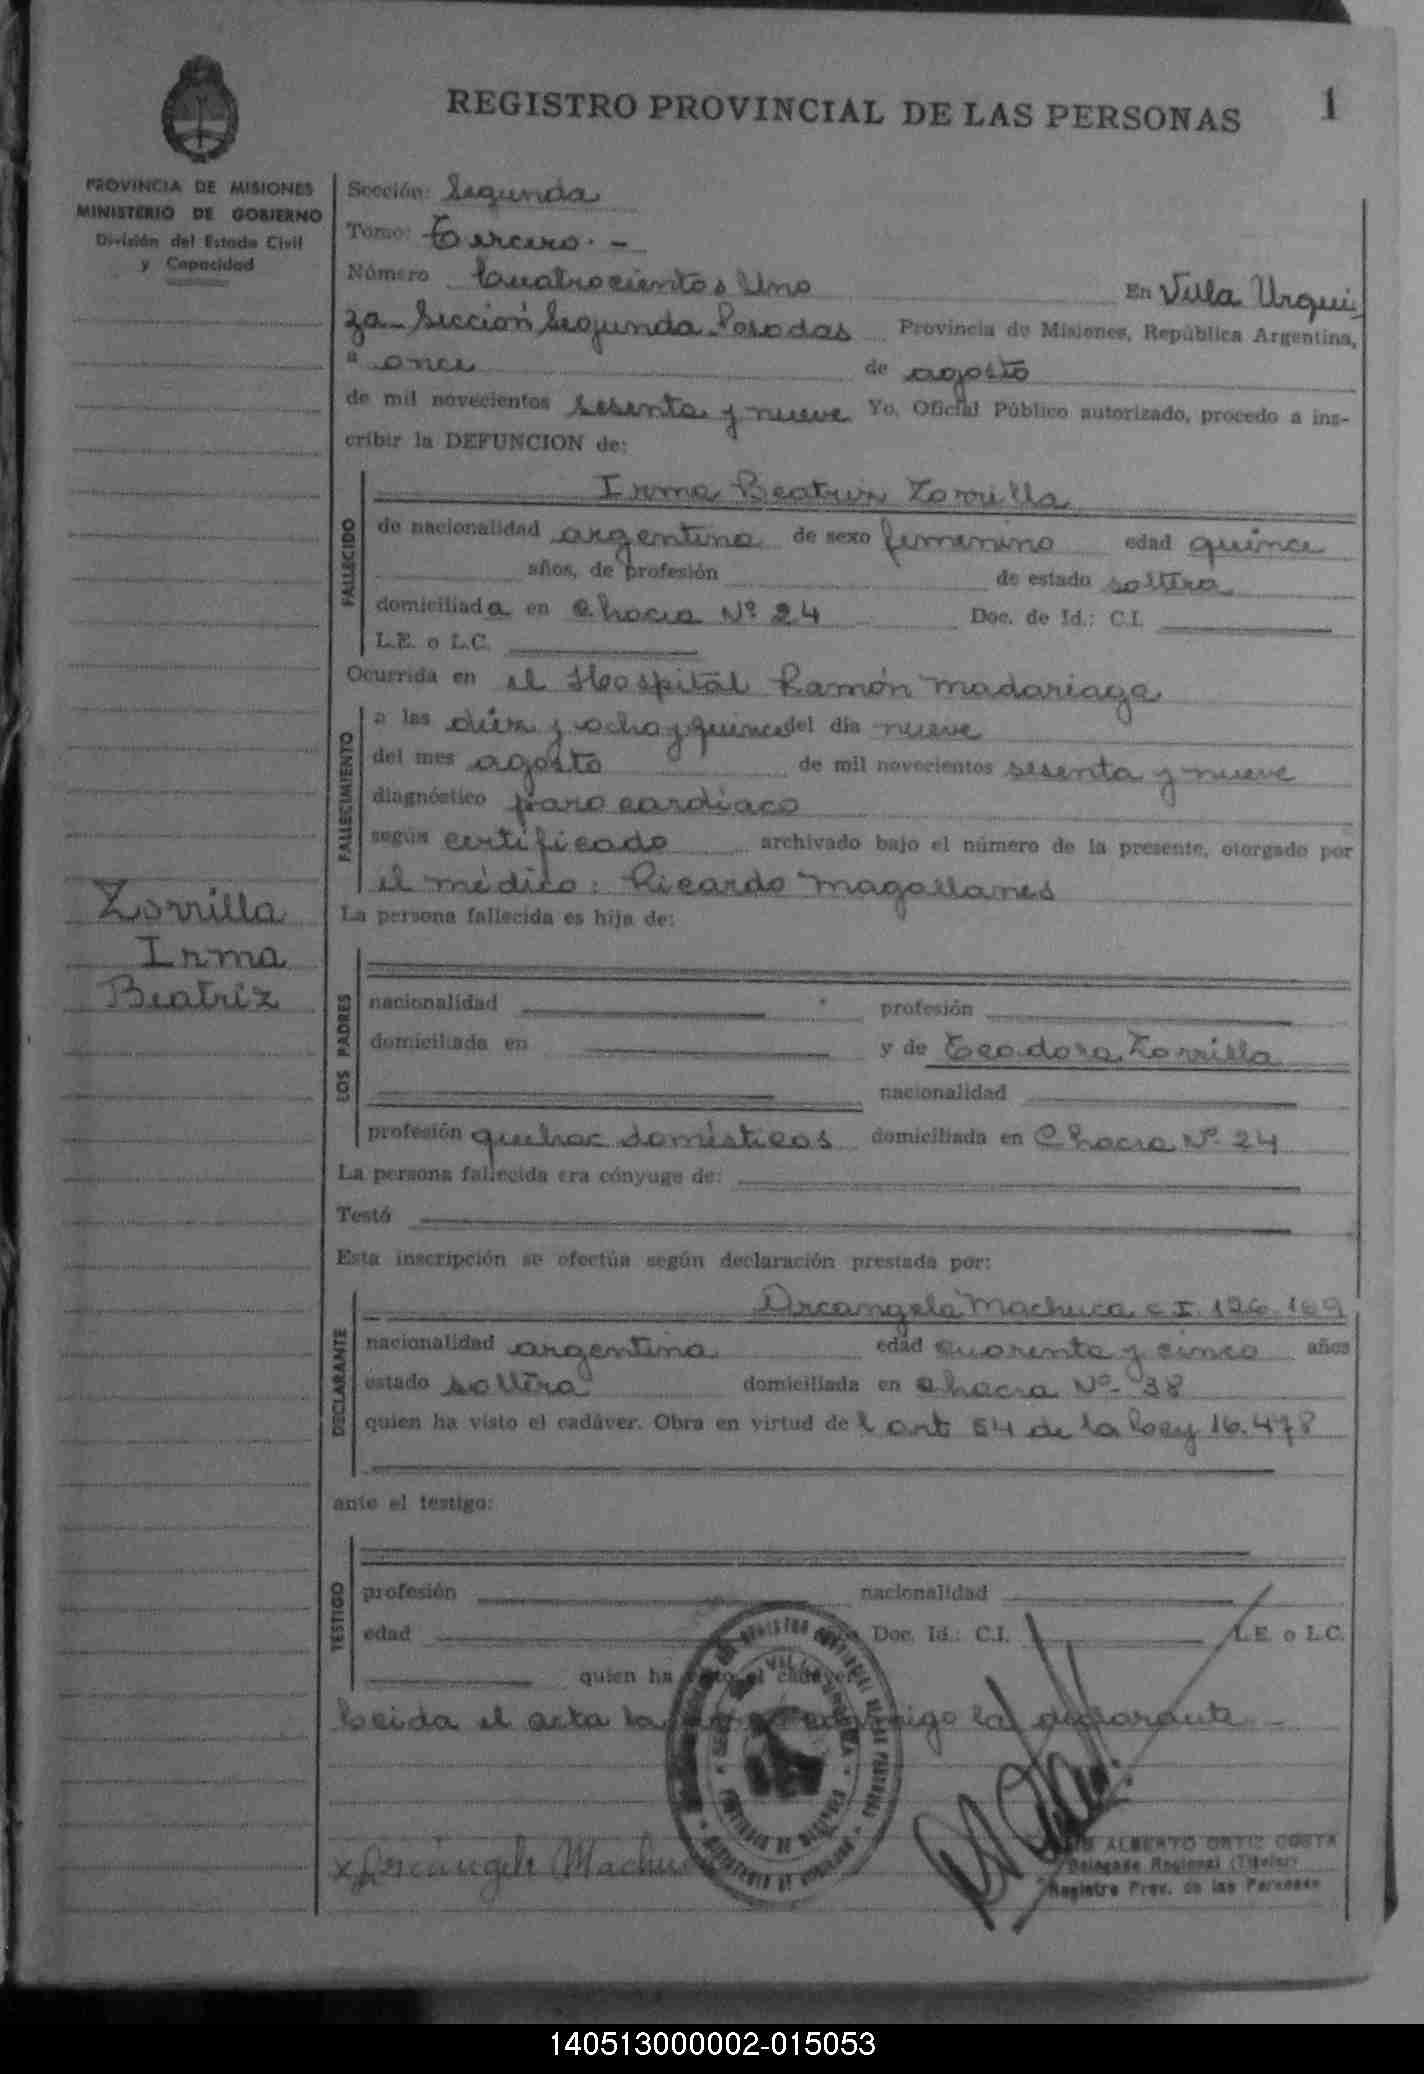 REGISTRO PROVINCIAL DE LAS PERSONAS
1
PROVINCIA DE MISIONES
MINISTERIO DE GOBIERNO
División del Estado Civil
y Capacidad
Sección: Segunda
Tomo: Tercero. -
Número Cuatrocientos Uno En Villa Urqui
za - Sección Segunda Posadas Provincia de Misiones, República Argentina,
a once de agosto
de mil novecientos sesenta y nueve Yo, Oficial Público autorizado, procedo a ins-
cribir la DEFUNCION de:
FALLECIDO
Irma Beatriz Zorrilla
de nacionalidad argentina de sexo femenino edad quince
años, de profesión de estado soltera
domiciliada en Chacra Nº 24 Doc. de Id.: C.I.
L.E. o L.C.
Ocurrida en el Hospital Ramón Madariaga
FALLECIMIENTO
a las diez y ocho y quince del día nueve
del mes agosto de mil novecientos sesenta y nueve
diagnóstico paro cardíaco
según certificado archivado bajo el número de la presente, otorgado por
el médico: Ricardo Magallanes
Zorrilla
Irma
Beatriz
La persona fallecida es hija de:
LOS PADRES
nacionalidad profesión
domiciliada en y de Teodora Zorrilla
nacionalidad
profesión quehac domésticos domiciliada en Chacra Nº 24
La persona fallecida era cónyuge de:
Testó
Esta inscripción se efectúa según declaración prestada por:
DECLARANTE
Arcangela Machuca C.I. 126.169
nacionalidad argentina edad cuarenta y cinco años
estado soltera domiciliada en Chacra Nº 38
quien ha visto el cadáver. Obra en virtud del art 54 de la Ley 16.478
ante el testigo:
TESTIGO
profesión nacionalidad
edad Doc. Id.: C.I. L.E. o L.C.
quien ha visto el cadáver
Leida el acta la conmigo la declarante. -
x Arcángela Machu
ALBERTO ORTIZ COSTA
Delegado Regional (Titular)
Registro Prov. de las Personas
140513000002-015053